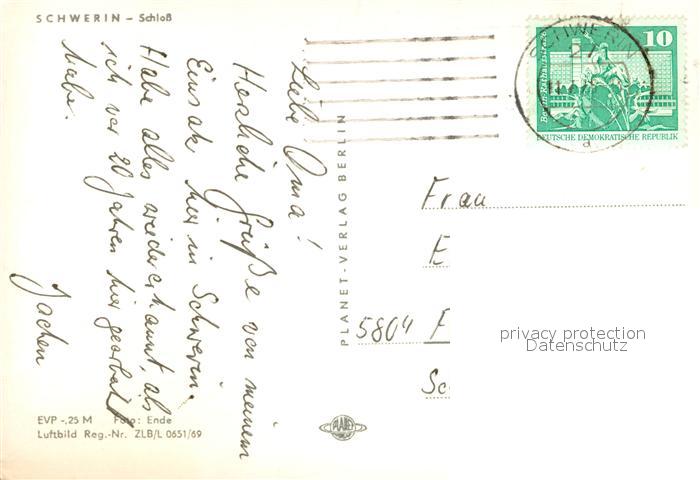 SCHWERIN – Schloß
Liebe Oma!
Herzliche Grüße von meinem
Einsatz hier in Schwerin.
Habe alles wiedererkannt, als
ich vor 20 Jahren hier gearbeitet
habe.
Jochen
EVP -,25 M Foto: Ende
Luftbild Reg.-Nr. ZLB/L 0651/69
PLANET-VERLAG BERLIN
PLANET
SCHWERIN
10
Berlin, Rathausstraße
DEUTSCHE DEMOKRATISCHE REPUBLIK
a
Frau
E
5804 F
Sc
privacy protection
Datenschutz